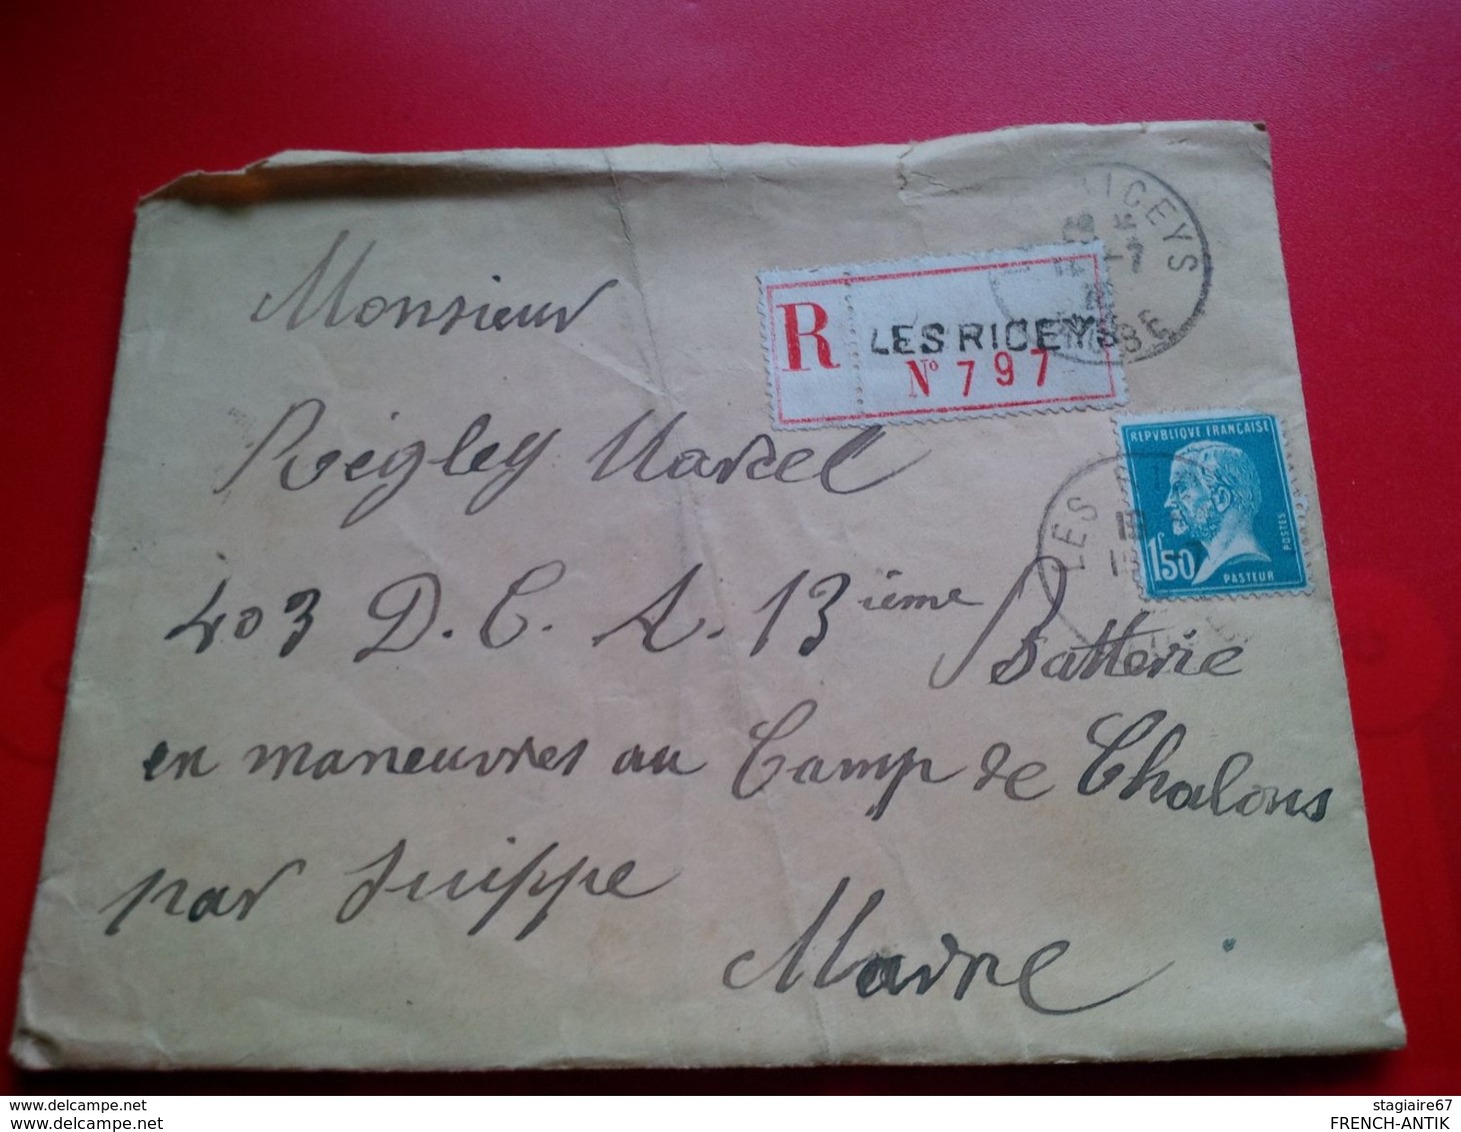 RICEYS
AUBE
R
LES RICEYS
N° 797
REPVBLIQVE FRANCAISE
1f50
POSTES
PASTEUR
LES
Monsieur
Reigley Marcel
403 D. C. A. 13ième Batterie
en maneuvres au Camp de Chalons
par Suippe
Marne
www.delcampe.net
www.delcampe.net
stagiaire67
FRENCH-ANTIK